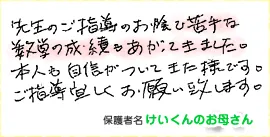 先生のご指導のお陰で苦手な
数学の成績もあがてきました。
本人も自信がついてきた様です。
ご指導宜しくお願い致します。
保護者名 けいくんのお母さん